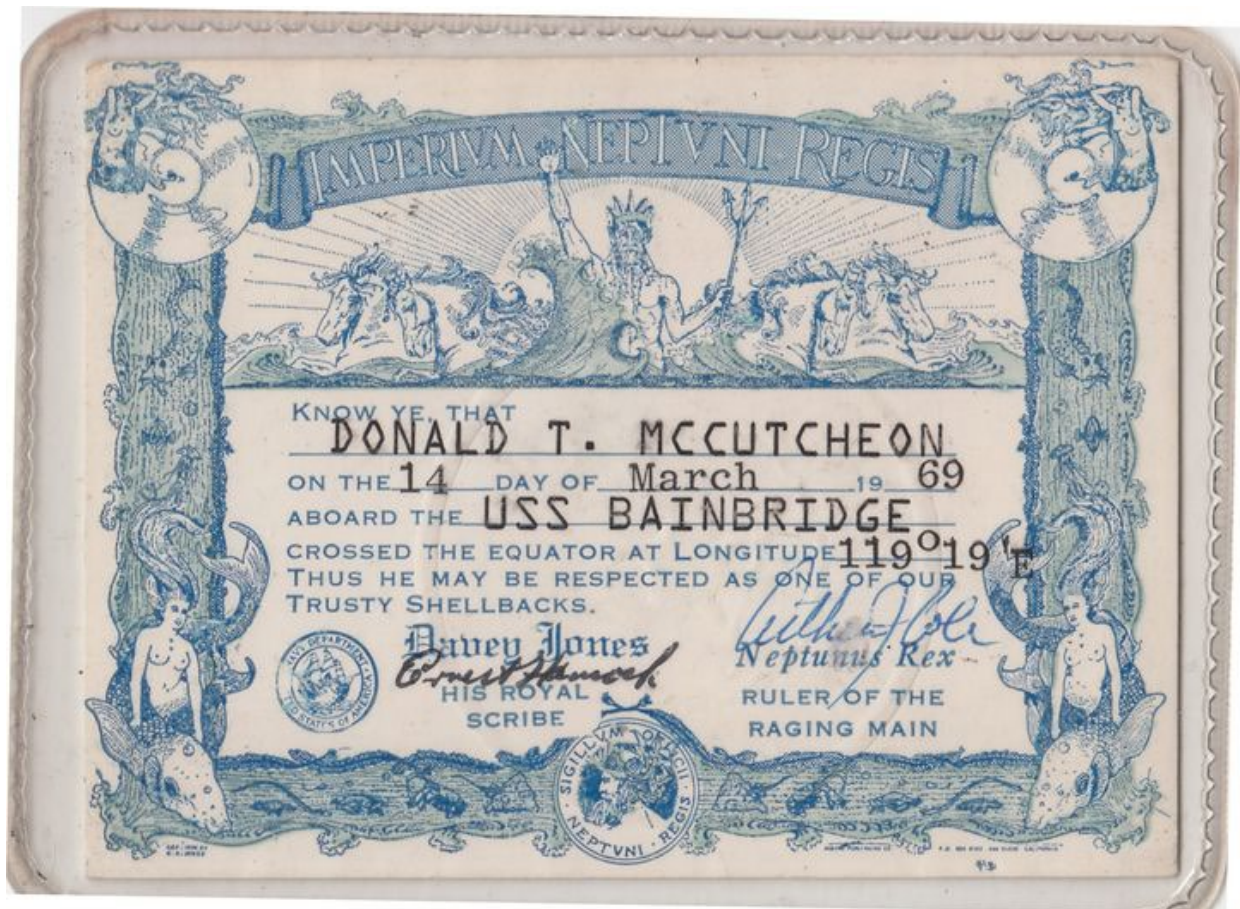 IMPERIVM NEPTVNI REGIS
KNOW YE, THAT
DONALD T. MCCUTCHEON
ON THE 14 DAY OF March 19 69
ABOARD THE USS BAINBRIDGE
CROSSED THE EQUATOR AT LONGITUDE 119°19'E
THUS HE MAY BE RESPECTED AS ONE OF OUR
TRUSTY SHELLBACKS.
Davey Jones
HIS ROYAL
SCRIBE
Neptunus Rex
RULER OF THE
RAGING MAIN
SIGILLVM OFFICII
NEPTVNI · REGIS